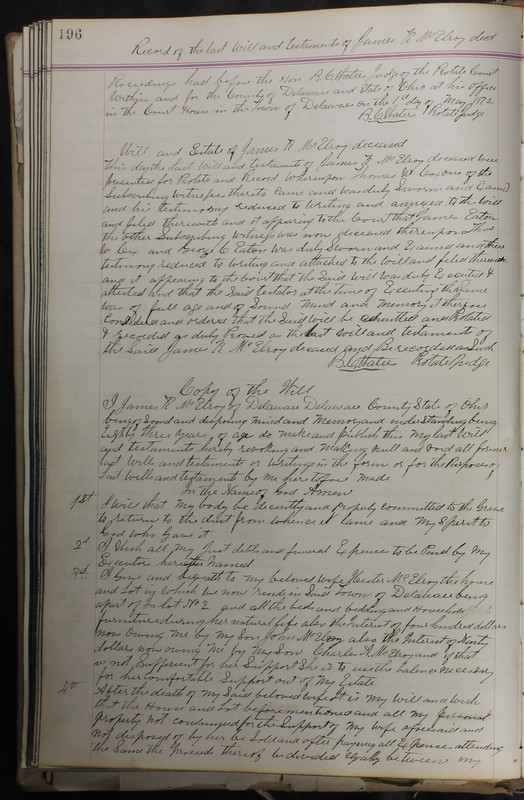 196
Record of the last Will and testaments of James R McElroy decd
Proceedings had before the Hon B. C. Waters Judge of the Probate Court
Within and for the County of Delaware and State of Ohio at his Office
in the Court House in the Town of Delaware on the 1st day of May 1872
B. C. Waters Probate Judge
Will and Estate of James R McElroy deceased
This day the last Will and testament of James R McElroy deceased were
presented for Probate and Record Whereupon Thomas W Cox one of the
Subscribing Witnesses thereto Came and was duly Sworn and Examd
and his testimony reduced to Writing and annexed to the Will
and filed therewith and it appearing to the Court that James Eaton
the other Subscribing Witness was now deceased thereupon Thos
W. Cox and George C Eaton was duly Sworn and Examd and there
testimony reduced to Writing and attached to the Will and filed therewith
and it appearing to the Court that the Said Will was duly Executed &
attested and that the Said testator at the time of Executing the Same
was of full age and of Sound Mind and Memory it therefore
Considered and ordered that the Said Will be admitted and Probated
& Recorded as duly Proved as the last Will and testament of
the Said James R McElroy deceased and Be recorded as Such
B. C. Waters Probate Judge
Copy of the Will
I James R McElroy of Delaware Delaware County State of Ohio
being of Sound and disposing mind and Memory and understanding being
Eighty three years of age do make and publish this My last Will
and testament hereby revoking and making null and void all former
last Wills and testaments or Writings in the form or for the Purposes of
last Wills and testaments by Me heretofore made
In the Name of God Amen
1st I will that My body be decently and properly committed to the Grave
to return to the dust from whence it came and My Spirit to
God who Gave it
2d I Wish all My Just debts and funeral Expences to be Paid by My
Executor hereafter Named
3d I Give and bequeath to My beloved Wife Hester McElroy the house
and Lot in Which We now reside in Said Town of Delaware being
a part of in lot No 2 and all the beds and bedding and Household
furniture during her natural life also the Interest of four hundred dollars
now owing Me by My Son John McElroy also the Interest of Sixty
dollars now owing Me by My Son Charles A McElroy and if that
is not Sufficient for her Support She is to use the balance necessary
for her comfortable Support out of My Estate
4th After the death of My Said beloved Wife It is My Will and Wish
that the House and Lot before mentioned and all My personal
Property not consumed for the Support of My Wife aforesaid and
not disposed of by her be Sold and after paying all Expences attending
the Same the proceeds thereof be divided Equaly between My